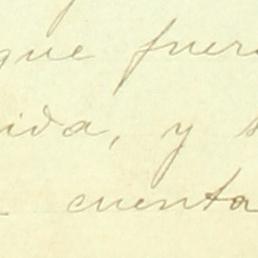 que fuer
ida, y s
cuenta